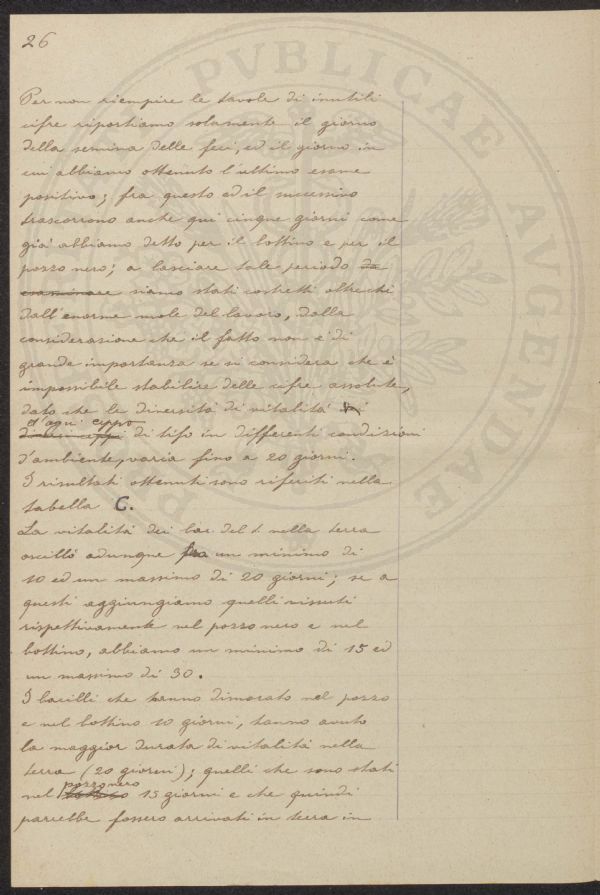 26
PVBLICAE AVGENDAE
Per non riempire le tavole di inutili
cifre riportiamo solamente il giorno
della semina delle feci, ed il giorno in
cui abbiamo ottenuto l'ultimo esame
positivo; fra questo ed il successivo
trascorrono anche qui cinque giorni come
già abbiamo detto per il bottino e per il
pozzo nero; a lasciare tale periodo da
esaminare siamo stati costretti oltrechè
dall'enorme mole del lavoro, dalla
considerazione che il fatto non è di
grande importanza se si considera che è
impossibile stabilire delle cifre assolute,
dato che la diversità di vitalità
d'ogni ceppo
di tifo in differenti condizioni
d'ambiente, varia fino a 20 giorni.
I risultati ottenuti sono riferiti nella
tabella C.
La vitalità dei bac. del t. nella terra
oscillò adunque fra un minimo di
10 ed un massimo di 20 giorni; se a
questi aggiungiamo quelli vissuti
rispettivamente nel pozzo nero e nel
bottino, abbiamo un minimo di 15 ed
un massimo di 30.
I bacilli che hanno dimorato nel pozzo
e nel bottino 10 giorni, hanno avuto
la maggior durata di vitalità nella
terra (20 giorni); quelli che sono stati
pozzo nero
nel 15 giorni e che quindi
parrebbe fossero arrivati in terra in